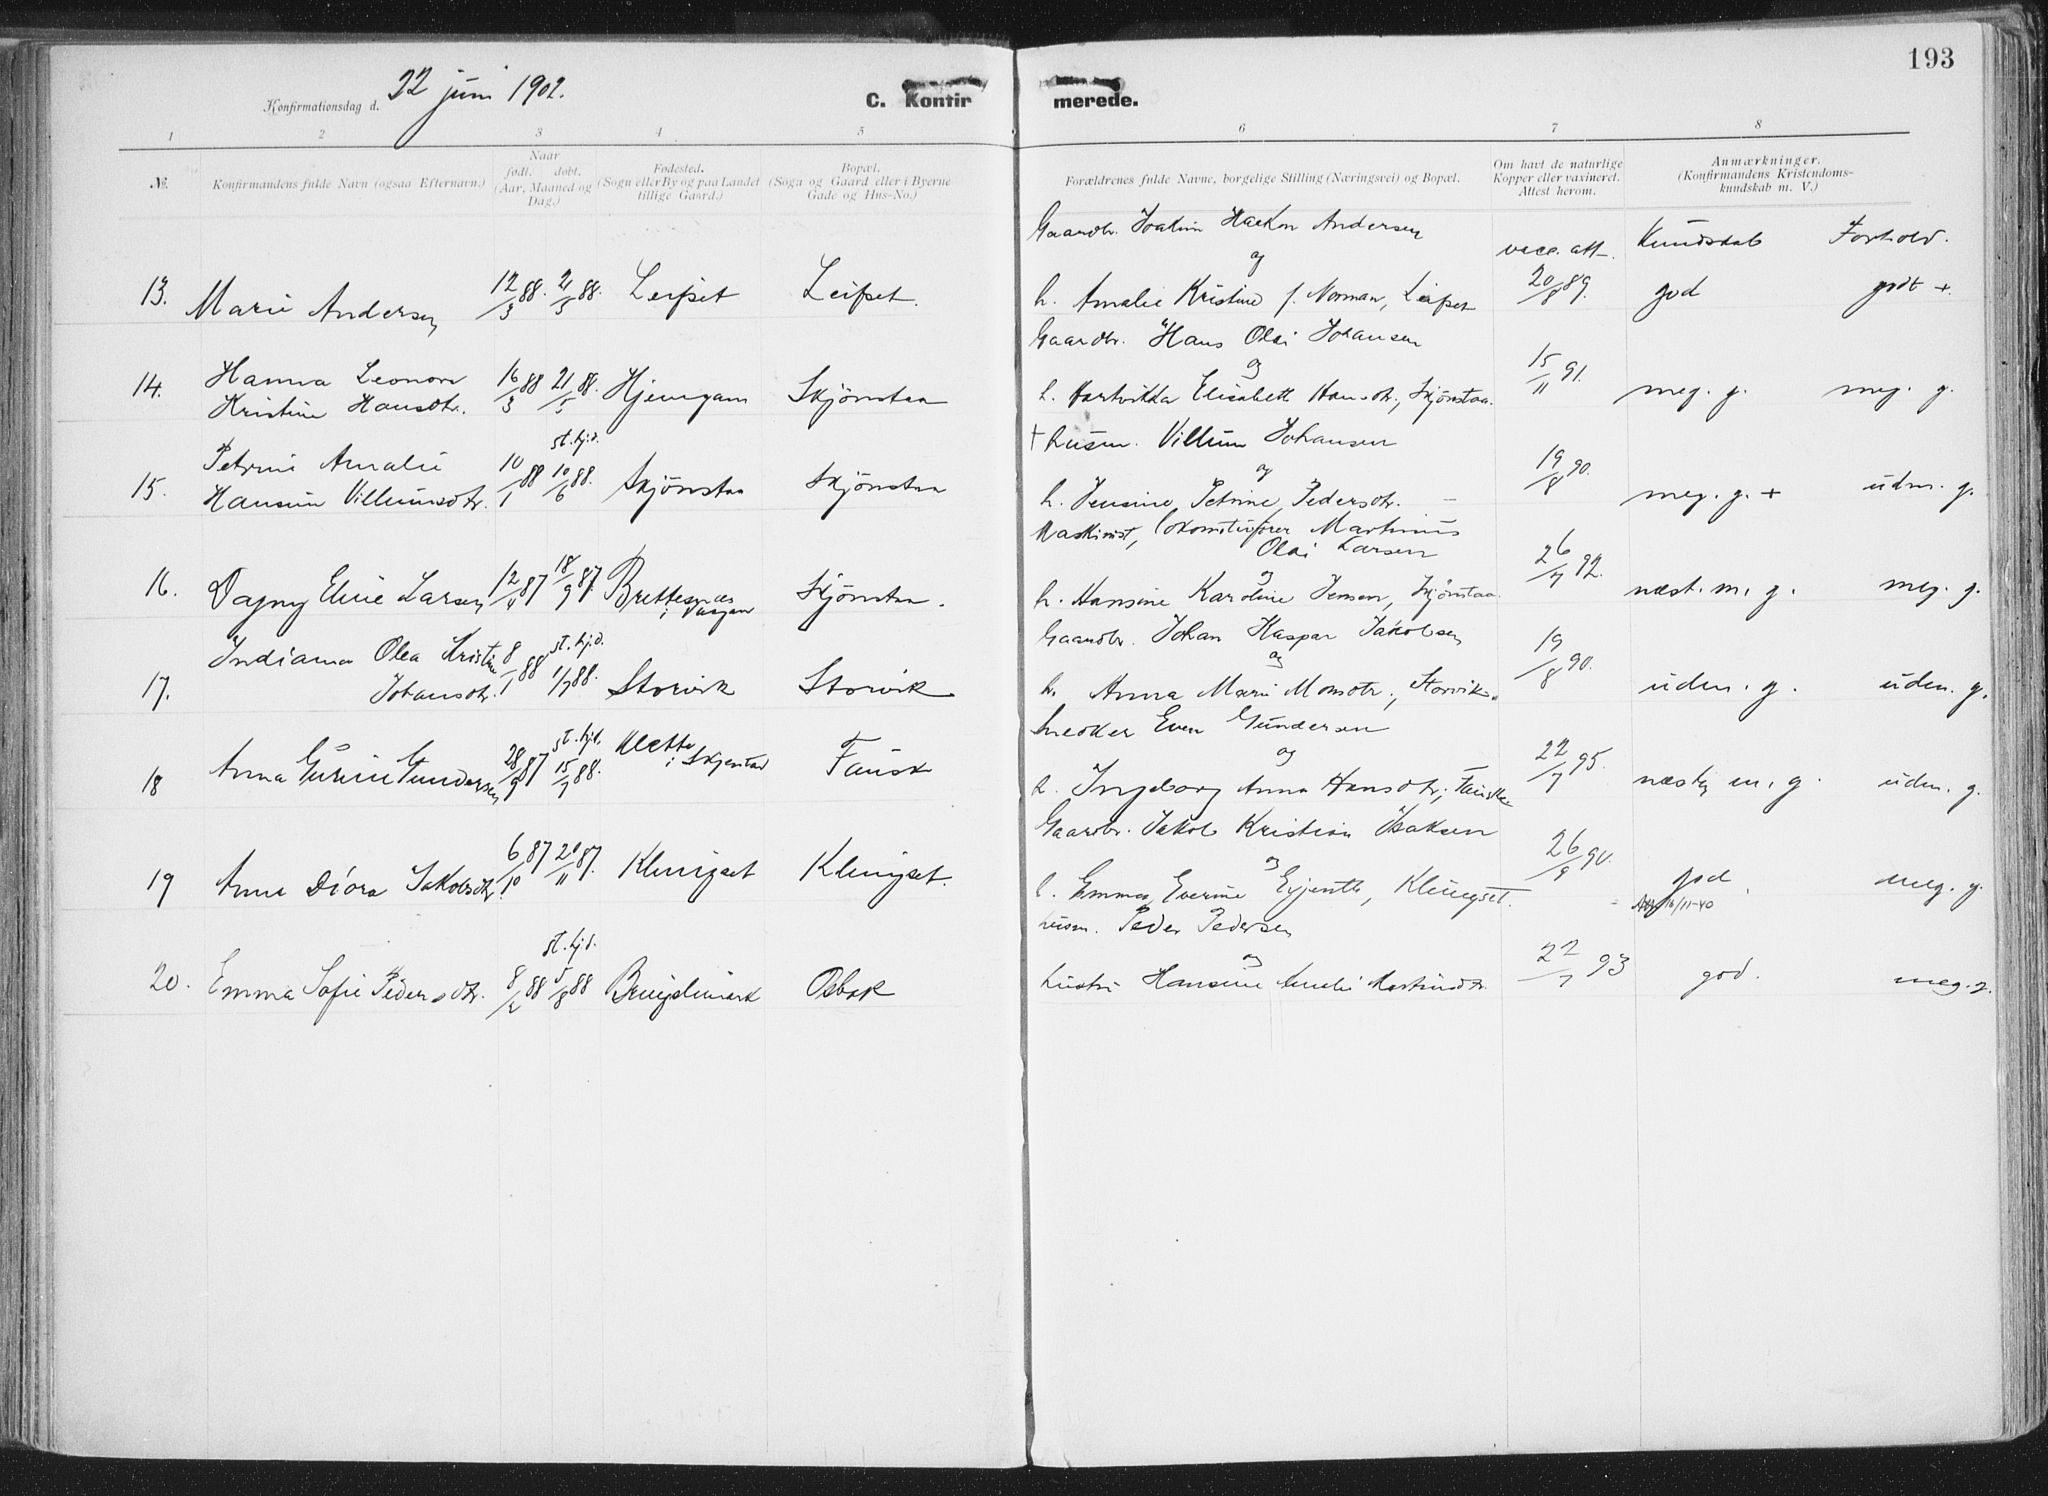 193
Konfirmationsdag d. 22 juni 1902.
C. Konfirmerede.
1 2 3 4 5 6 7 8
№. Konfirmandens fulde Navn (ogsaa Efternavn.) Naar født. døbt. (Aar, Maaned og Dag.) Fødested. (Sogn eller By og paa Landet tillige Gaard.) Bopæl. (Sogn og Gaard eller i Byerne Gade og Hus-No.) Forældrenes fulde Navne, borgelige Stilling (Næringsvei) og Bopæl. Om havt de naturlige Kopper eller vaxineret. Attest herom. Anmærkninger. (Konfirmandens Kristendomskundskab m. V.)
Gaardbr. Joakim Haakon Andersen
og
vacc. att. Kundskab Forhold.
13. Marie Andersen 12/3 88. 21/5 88. Leifset Leifset. h. Amalie Kristine f. Norman, Leifset 20/8 89. god godt +
Gaardbr. Hans Olai Johansen
og
14. Hanna Leonore Kristine Hansdtr. 16/3 88 21/5 88. Hjemgam Skjønstaa h. Hartvikka Elisabeth Hansdtr., Skjønstaa. 15/11 91. meg. g. meg. g.
+ husm. Villum Johansen
og
15. Petrine Amalie Hansine Villumsdtr. 10/1 88 st. hjd. 10/6 88. Skjønstaa Skjønstaa h. Jensine Petrine Pedersdtr. – 19/8 90. meg. g. + udm. g.
Maskinist, lokomotivfører Martinus
Olai Larsen
og
16. Dagny Eline Larsen 12/4 87 18/9 87. Brettesnæs i Vaagan Skjønstaa. h. Hansine Karoline Jensen, Skjønstaa. 26/7 92. næst. m. g. meg. g.
Gaardbr. Johan Kaspar Jakobsen
og
17. Indiana Olea Kristine Johansdtr. 8/1 88 st. hjd. 1/7 88. Storvik Storvik h. Anna Marie Monsdtr., Storvik. 19/8 90. udm. g. udm. g.
Snedker Even Gundersen
og
18 Anna Gurine Gundersen 28/9 87 st. hjd. 15/7 88. Klette i Skjerstad Fausk h. Ingeborg Anna Hansdtr., Fauske 22/7 95. næsten m. g. udm. g.
Gaardbr. Jakob Kristian Isaksen
og
19 Anna Diora Jakobsdtr. 6/10 87 20/11 87. Klungset Klungset. h. Emma Everine Evjenth, Klungset. 26/9 90. god meg. g.
16/11-40
husm. Peder Pedersen
og
20. Emma Sofie Pedersdtr. 8/2 88 st. hjd. 5/8 88 Bringslimark Osbak hustru Hansine Amalie Martinsdtr. 22/7 93 god. meg. g.